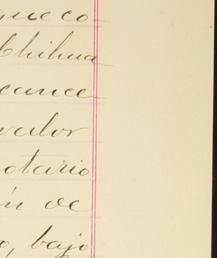 que co
Chihua
cance
valor
otario
ón de
o, bajo